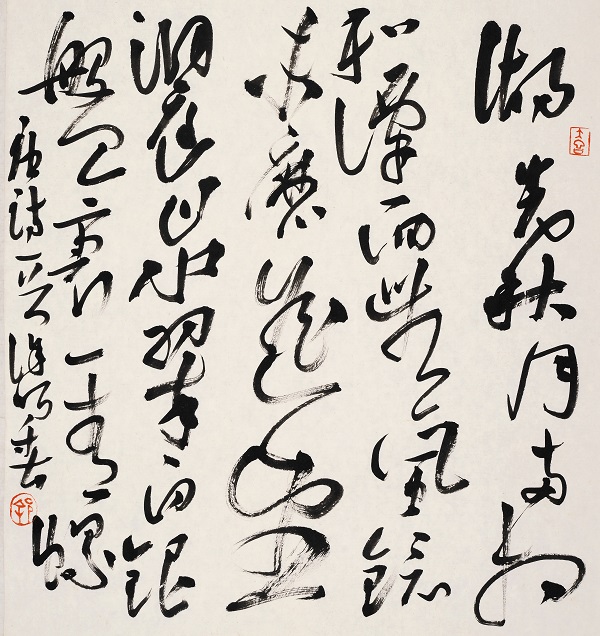 湖光秋月兩相
和潭面無風鏡
未磨遙望
洞庭山水翠白銀
盤裏一青螺
唐詩一首